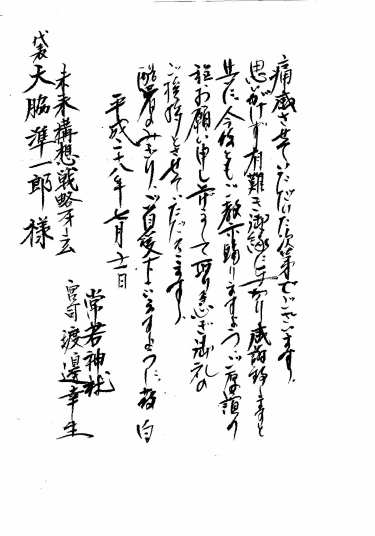 痛感させていただけた次第でございます。
思いがけず有難き御縁にすがり感謝致しますと
共に、今後ともご教示賜りますようご厚誼の
程お願い申し上げまして取り急ぎ御礼の
ご挨拶とさせていただきます。
酷暑のみぎり、ご自愛下さいますように。敬白
平成二十八年七月十一日
常若神社
宮司 渡邊幸生
未来構想戦略フォーラム
代表 大脇準一郎様